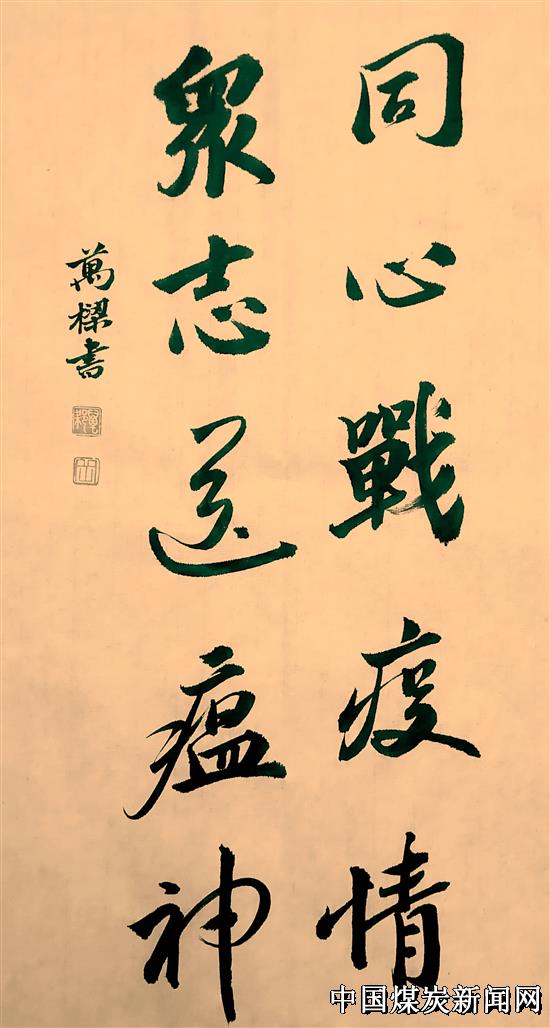 同心戰疫情
眾志送瘟神
萬樑书
中国煤炭新闻网